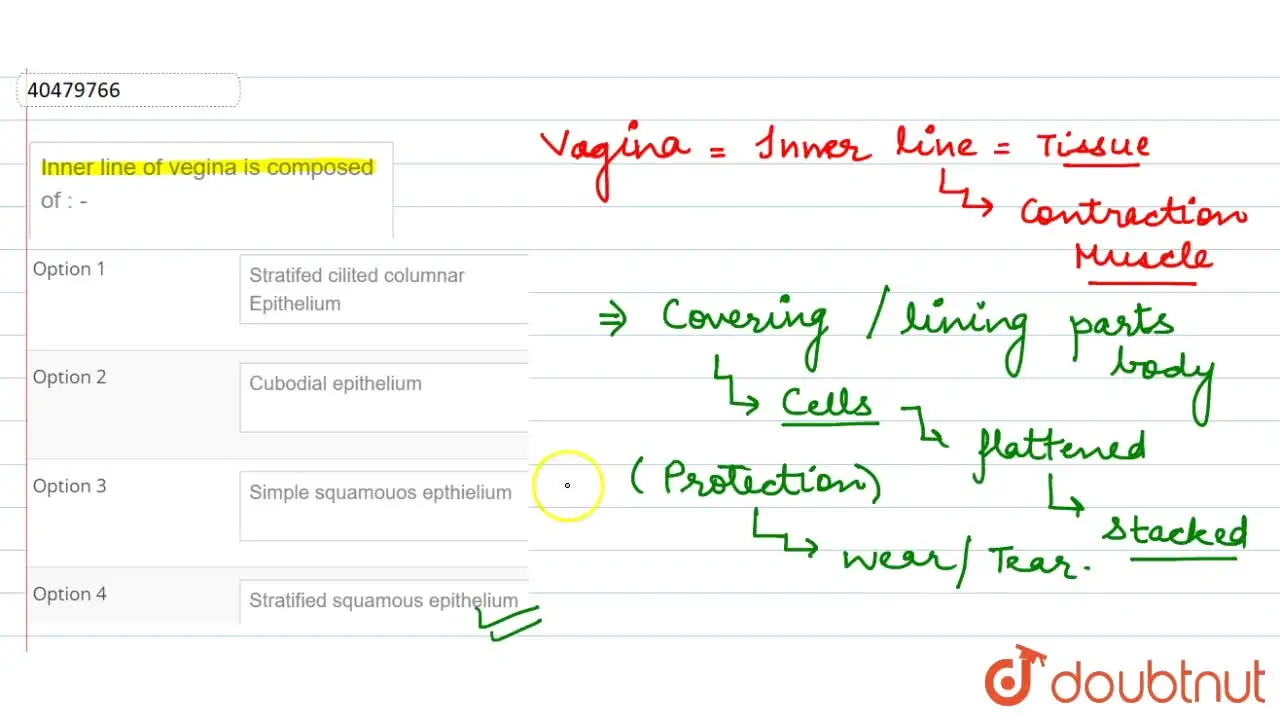 40479766
Inner line of vegina is composed
of : -
Option 1
Stratifed cilited columnar
Epithelium
Option 2
Cubodial epithelium
Option 3
Simple squamouos epthielium
Option 4
Stratified squamous epithelium
Vagina = Inner line = Tissue
Contraction
Muscle
⇒ Covering / lining parts
body
Cells
flattened
(Protection)
stacked
wear/ Tear.
doubtnut